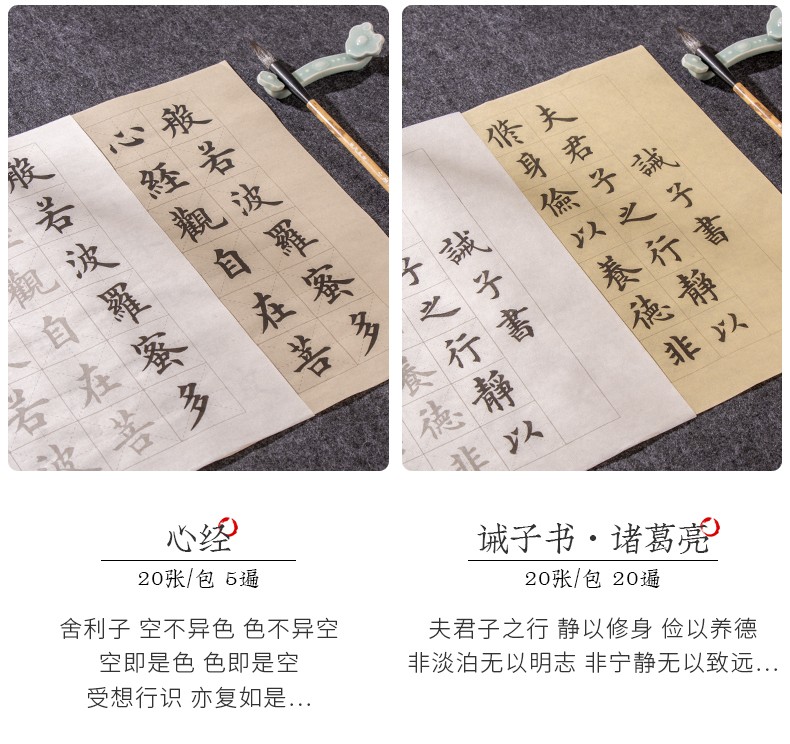 般若波羅蜜多
心經觀自在菩
般若波羅蜜多
觀自在菩
若波
誡子書
夫君子之行靜以
修身儉以養德非
誡子書
子之行靜以
養德非
心经
20张/包 5遍
舍利子 空不异色 色不异空
空即是色 色即是空
受想行识 亦复如是...
诫子书·诸葛亮
20张/包 20遍
夫君子之行 静以修身 俭以养德
非淡泊无以明志 非宁静无以致远...